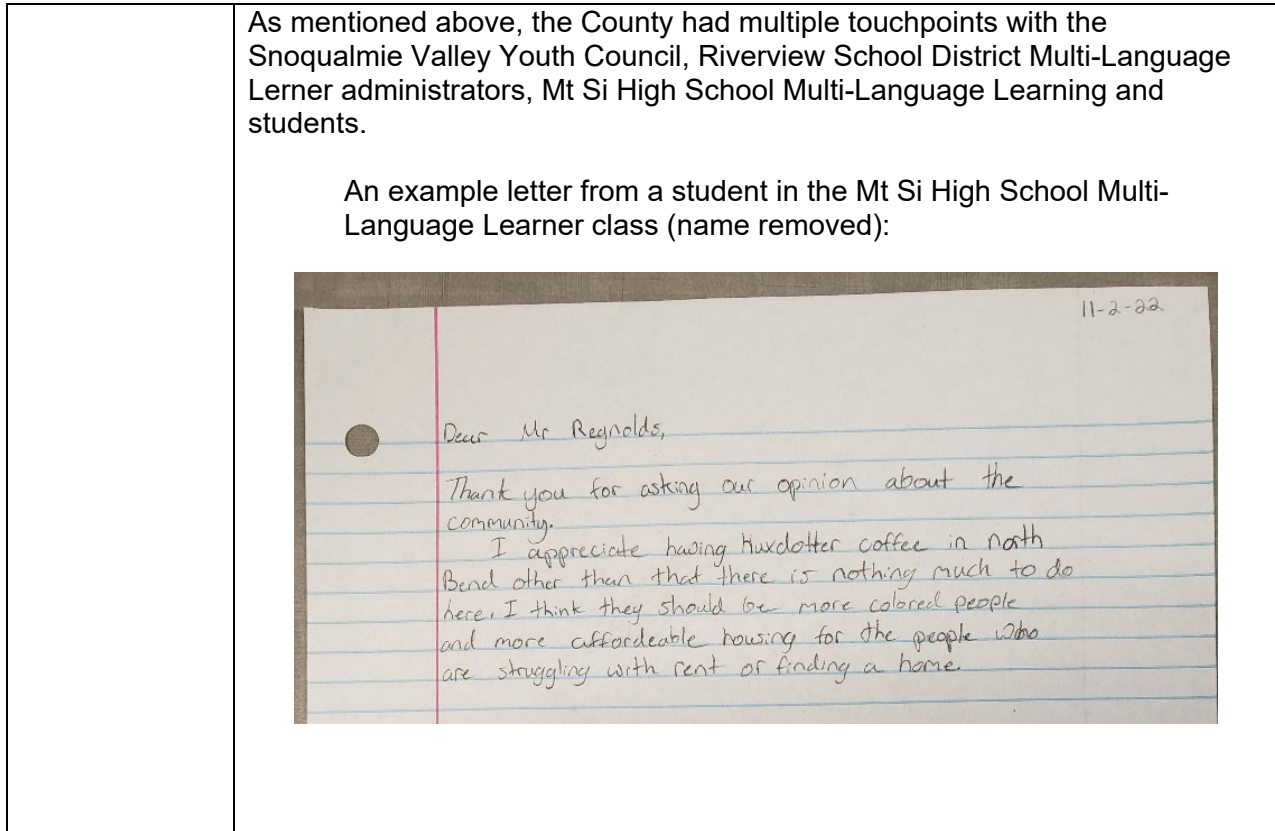 As mentioned above, the County had multiple touchpoints with the
Snoqualmie Valley Youth Council, Riverview School District Multi-Language
Lerner administrators, Mt Si High School Multi-Language Learning and
students.
An example letter from a student in the Mt Si High School Multi-
Language Learner class (name removed):
11-2-22
Dear Mr Reynolds,
Thank you for asking our opinion about the
community.
I appreciate having Huxdotter coffee in north
Bend other than that there is nothing much to do
here. I think they should be more colored people
and more affordeable housing for the people who
are struggling with rent or finding a home.